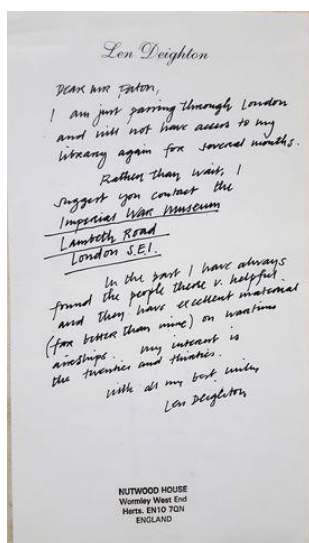 Len Deighton
DEAR MR Eaton,
I am just passing through London
and will not have access to my
library again for several months.
Rather than wait, I
suggest you contact the
Imperial War Museum
Lambeth Road
London S.E.1.
In the past I have always
found the people there v. helpful
and they have excellent material
(far better than mine) on wartime
airships. My interest is
the twenties and thirties.
with all my best wishes
Len Deighton
NUTWOOD HOUSE
Wormley West End
Herts. EN10 7QN
ENGLAND